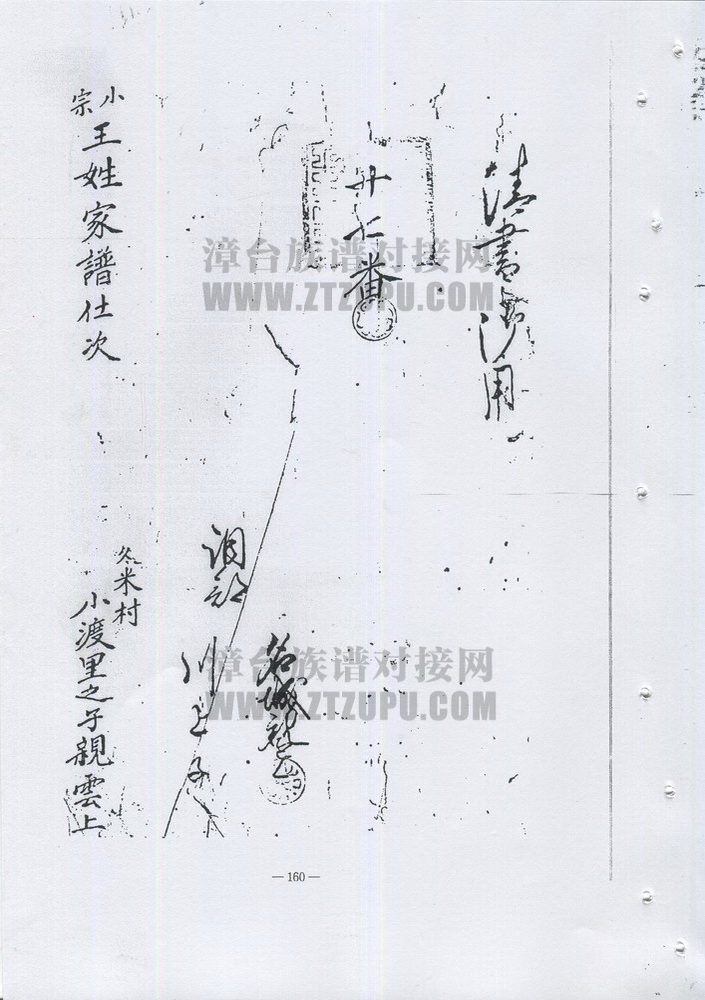 清書沙用
廿七番
調部 川上子
小宗
王姓家譜仕次
久米村
小渡里之子親雲上
漳台族谱对接网
WWW.ZTZUPU.COM
漳台族谱对接网
WWW.ZTZUPU.COM
—160—